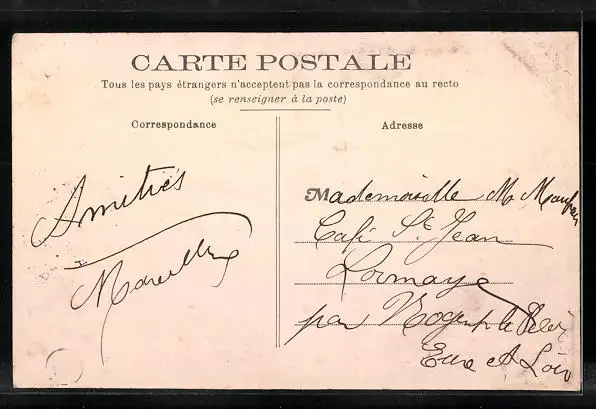 CARTE POSTALE
Tous les pays étrangers n'acceptent pas la correspondance au recto
(se renseigner à la poste)
Correspondance
Amitiés
Adresse
Mademoiselle M.
Café St Jean
Lormaye
par Nogent le
Eure & Loir